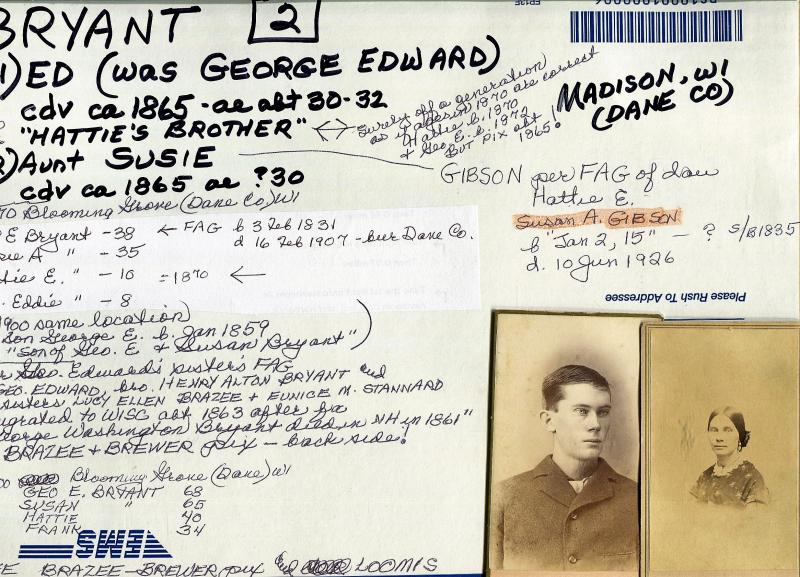 BRYANT 2
ED (WAS GEORGE EDWARD)
cdv ca 1865 - ae abt 30-32
"HATTIE'S BROTHER" ↔
Surely off a generation
as if ages in 1870 are correct
Hattie b. 1870
& Geo. E. b. 1872
BUT pix abt
1865!
MADISON, WI
(DANE CO)
Aunt SUSIE
cdv ca 1865 ae ?30
GIBSON per FAG of dau
Hattie E.
Susan A. GIBSON
b "Jan 2, 15" - ? s/B 1835
d. 10 Jun 1926
Blooming Grove (Dane Co) WI
E Bryant - 38 ← FAG b 3 Feb 1831
d 16 Feb 1907 - bur Dane Co.
A " - 35
E. " - 10 = 1870 ←
Eddie " - 8
1900 same location)
son George E. b. Jan 1859
"Son of Geo. E & Susan Bryant")
Geo. Edward's sister's FAG
GEO. EDWARD, bro. HENRY ALTON BRYANT and
sisters LUCY ELLEN BRAZEE & EUNICE M. STANNARD
migrated to WISC abt 1863 after
George Washington Bryant died in NH in 1861"
BRAZEE & BREWER pix - back side!
Blooming Grove (Dane) WI
GEO E. BRYANT 68
SUSAN " 65
HATTIE 40
FRANK 34
Please Rush To Addressee
EMS
BRAZEE - BREWER pix LOOMIS